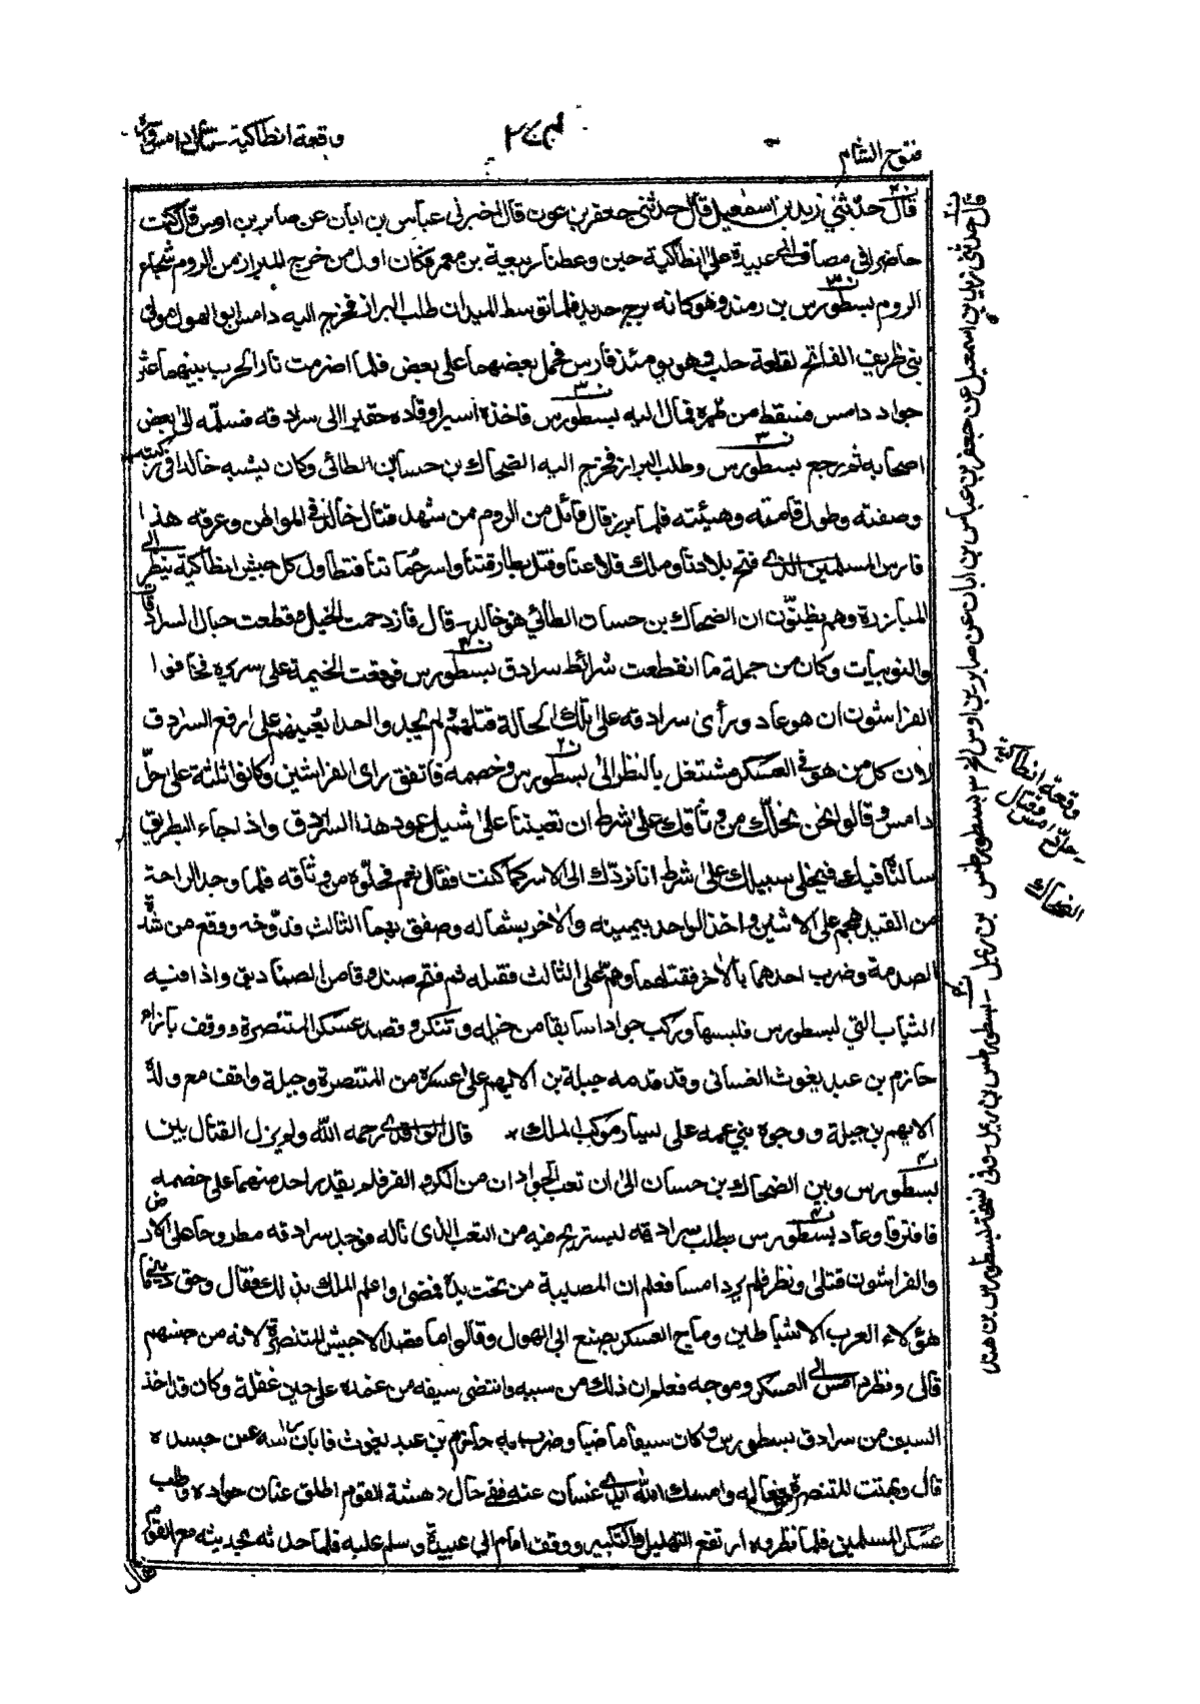 فتوح الشام
وقعة انطاكية
قال حدثني زيد بن اسمعيل قال حدثني جعفر بن عون قال اخبرني عباس بن ابان عن صابر بن اوس قال كنت
حاضرا في مصاف ابي عبيدة على انطاكية حين وعطنا ربيعة بن معمر فكان اول من خرج للبراز من الروم شجاع
الروم بسطورس بن رمند وهو كانه برج حديد فلما توسط الميدان طلب البراز فخرج اليه دامس ابو الهول مولى
بني ظريف الفاتح لقلعة حلب وهو يومئذ فارس فحمل بعضهما على بعض فلما اضرمت نار الحرب بينهما عثر
جواد دامس فسقط من ظهره فمال اليه بسطورس فاخذه اسيرا وقاده حقيرا الى سرادقه فسلّمه الى بعض
اصحابه ثم رجع بسطورس وطلب البراز فخرج اليه الضحاك بن حسان الطائي وكان يشبه خالدا في ركبته
وصفته وطول قامته وهيئته فلما برز قال قائل من الروم ممن شهد قتال خالد في المواطن وعرفه هذا
فارس المسلمين الذي فتح بلادنا وملك قلاعنا وقتل بطارقتنا واسر حماتنا فتطاول كل جيش انطاكية ينظر الى
المبارزة وهم يظنّون ان الضحاك بن حسان الطائي هو خالد - قال فازدحمت الخيل وقطعت حبال السرادقات
والنوبيات وكان من جملة ما انقطعت شرائط سرادق بسطورس فوقعت الخيمة على سريره فخافوا
الفراشون ان هو عاد ورأى سرادقه على تلك الحالة قتلهم ولم يجدوا احدا يعينهم على رفع السرادق
لان كل من هو في العسكر مشتغل بالنظر الى بسطورس وخصمه فاتفق راى الفراشين وكانوا ثلثة على حلّ
دامس وقالوا نحن نحلّك من وثاقك على شرط ان تعيننا على شيل عمود هذا السرادق واذا جاء البطريق
سالناه فيك فيخلي سبيلك على شرط انا نردّك الى الاسر كما كنت فقال نعم فحلّوه من وثاقه فلما وجد الراحة
من القيد هجم على الاثنين واخذ الواحد بيمينه والاخر بشماله وصفق بهما الثالث فدوّخه ووقع من شدة
الصدمة وضرب احدهما بالاخر فقتلهما وهمّ على الثالث فقتله ثم فتح صندوقا من الصناديق واذا فيه
الثياب التي لبسطورس فلبسها وركب جوادا سابقا من خيله وتنكر وقصد عسكر المتنصرة ووقف بازاء
حازم بن عبد يغوث الغساني وقد قدمه جبلة بن الايهم على عسكره من المتنصرة وجبلة واقف مع ولده
الايهم بن جبلة ووجوه بني عمه على يسار موكب الملك قال الواقدي رحمه الله ولم يزل القتال بين
بسطورس وبين الضحاك بن حسان الى ان تعب الجوادان من الكر والفر فلم يقدر احد منهما على خصمه
فافترقا وعاد بسطورس يطلب سرادقه ليستريح فيه من التعب الذي ناله فوجد سرادقه مطروحا على الارض
والفراشون قتلى ونظر فلم ير دامسا فعلم ان المصيبة من تحت يده فمضى واعلم الملك بذلك فقال وحق ديني ما
هؤلاء العرب الا شياطين وماج العسكر بصنع ابي الهول وقالوا ما قصد الا جيش المتنصرة لانه من جنسهم
قال ونظر دامس الى العسكر وموجه فعلم ان ذلك من سببه وانتضى سيفه من غمده على حين غفلة وكان قد اخذ
السيف من سرادق بسطورس وكان سيفا ماضيا وضرب به حازم بن عبد يغوث فابان راسه عن جسده
قال وبهتت المتنصرة من فعاله وامسك الله ايدي غسان عنه ففي حال دهشة القوم اطلق عنان جواده وطلب
عسكر المسلمين فلما نظروه ارتفع التهليل والتكبير ووقف امام ابي عبيدة وسلم عليه فلما حدثه بحديثه مع القوم
فقال
قال حدثني زيد بن اسمعيل عن جعفر بن عباس بن ابان عن صابر بن اوس الخ
وقعة انطاكية
حلّ دامس وقتال
الضحاك